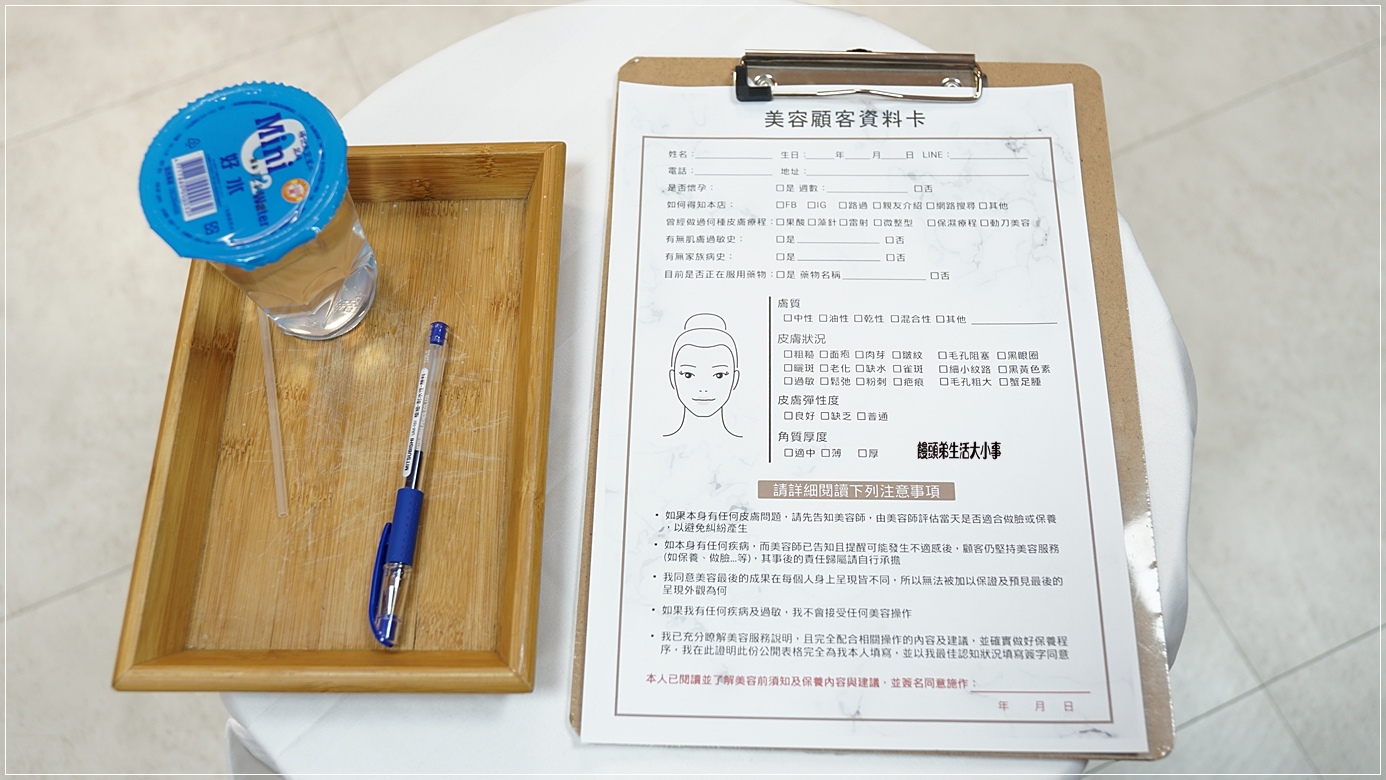 Mini
好水
Water
MITSUBISHI
美容顧客資料卡
姓名：__________ 生日：____年____月____日 LINE：__________
電話：__________ 地址：__________
是否懷孕： □是 週數：__________ □否
如何得知本店： □FB □IG □路過 □親友介紹 □網路搜尋 □其他
曾經做過何種皮膚療程：□果酸 □藻針 □雷射 □微整型 □保濕療程 □動刀美容
有無肌膚過敏史： □是__________ □否
有無家族病史： □是__________ □否
目前是否正在服用藥物：□是 藥物名稱__________ □否
膚質
□中性 □油性 □乾性 □混合性 □其他 __________
皮膚狀況
□粗糙 □面皰 □肉芽 □皺紋 □毛孔阻塞 □黑眼圈
□曬斑 □老化 □缺水 □雀斑 □細小紋路 □黑黃色素
□過敏 □鬆弛 □粉刺 □疤痕 □毛孔粗大 □蟹足腫
皮膚彈性度
□良好 □缺乏 □普通
角質厚度
□適中 □薄 □厚
饅頭弟生活大小事
請詳細閱讀下列注意事項
• 如果本身有任何皮膚問題，請先告知美容師，由美容師評估當天是否適合做臉或保養
，以避免糾紛產生
• 如本身有任何疾病，而美容師已告知且提醒可能發生不適感後，顧客仍堅持美容服務
(如保養、做臉...等)，其事後的責任歸屬請自行承擔
• 我同意美容最後的成果在每個人身上呈現皆不同，所以無法被加以保證及預見最後的
呈現外觀為何
• 如果我有任何疾病及過敏，我不會接受任何美容操作
• 我已充分瞭解美容服務說明，且完全配合相關操作的內容及建議，並確實做好保養程
序，我在此證明此份公開表格完全為我本人填寫，並以我最佳認知狀況填寫簽字同意
本人已閱讀並了解美容前須知及保養內容與建議，並簽名同意施作：__________
年 月 日